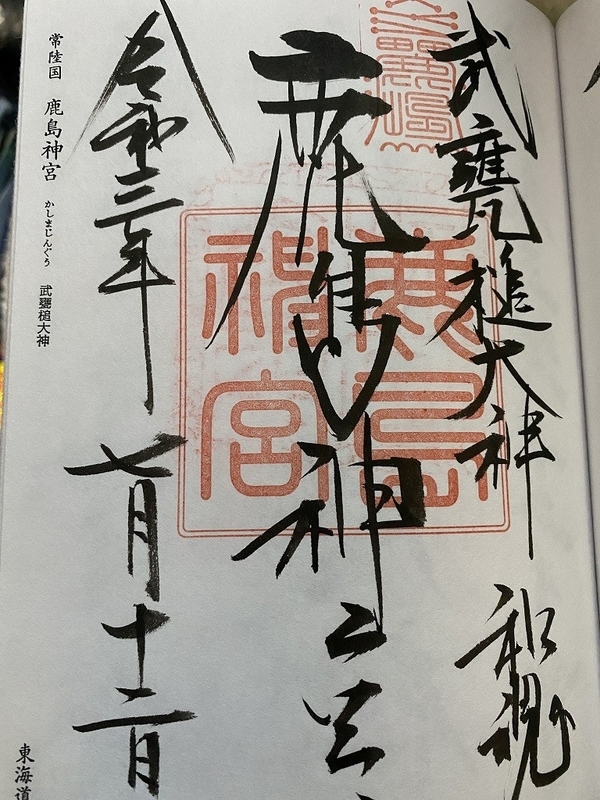 武甕槌大神 和魂
鹿島神宮
鹿島
神宮
令和三年 七月十二日
常陸国 鹿島神宮 かしまじんぐう 武甕槌大神
東海道